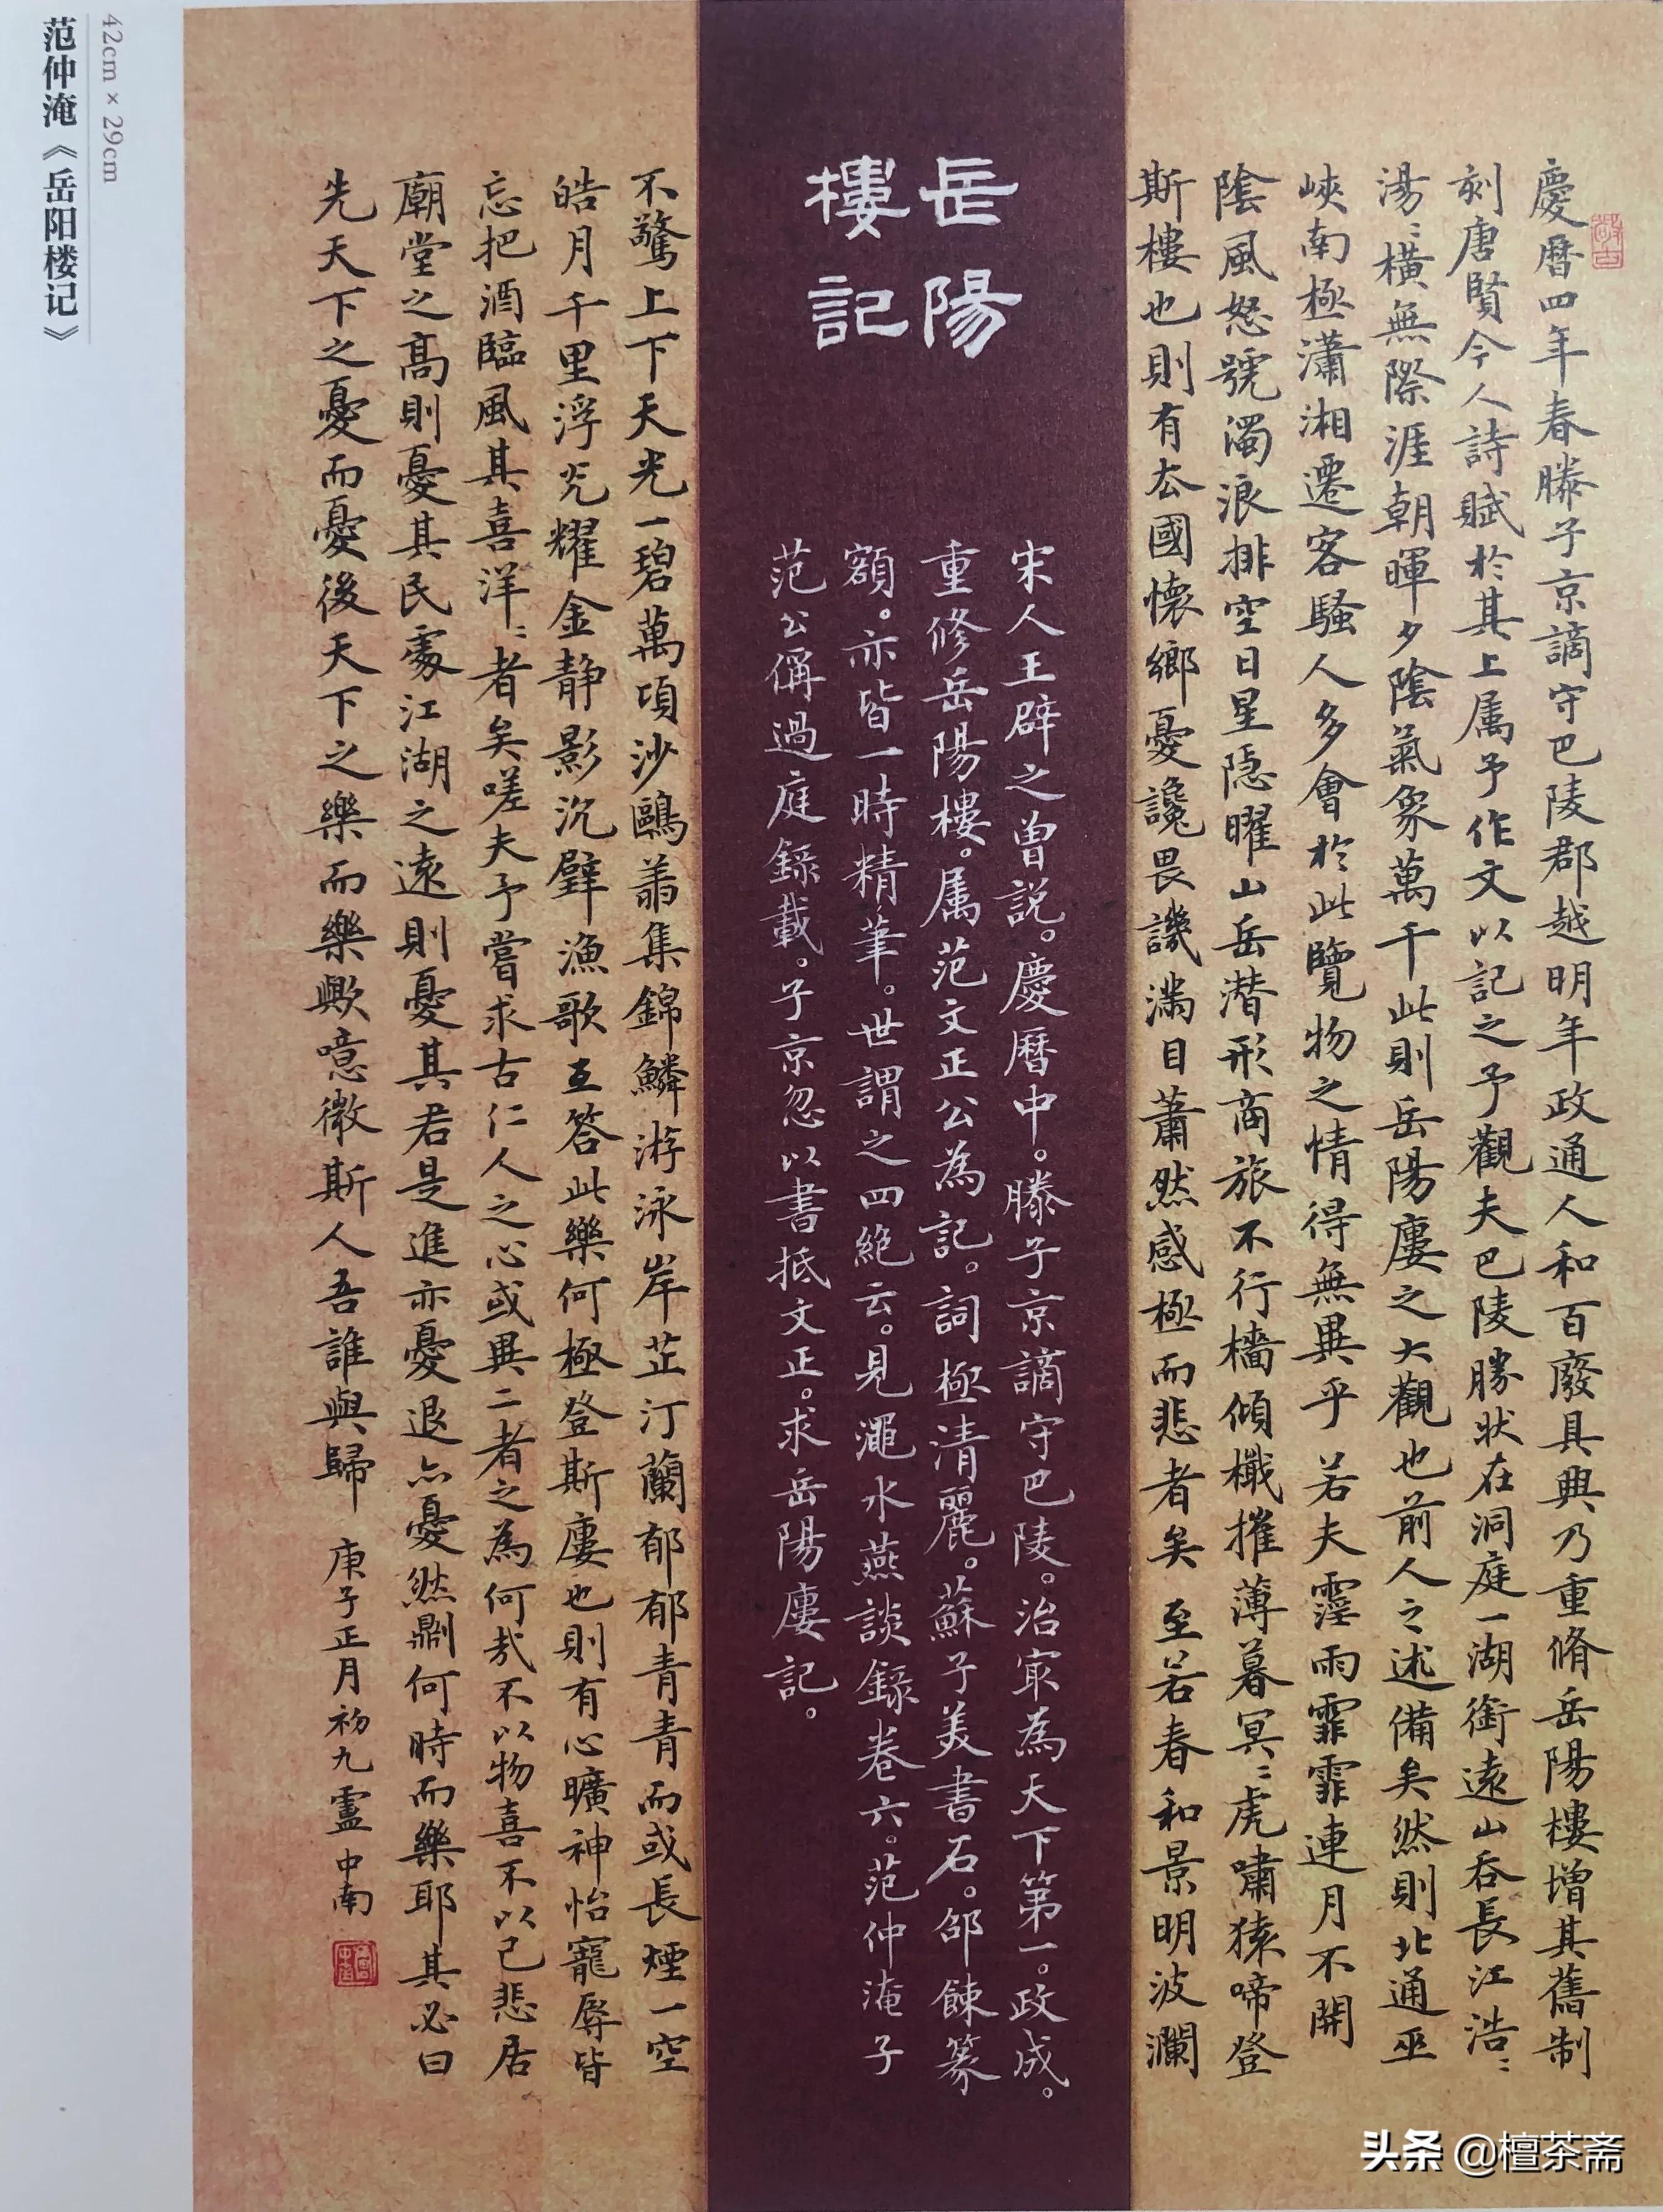 慶曆四年春滕子京謫守巴陵郡越明年政通人和百廢具興乃重脩岳陽樓增其舊制
刻唐賢今人詩賦於其上屬予作文以記之予觀夫巴陵勝狀在洞庭一湖銜遠山吞長江浩〻
湯〻橫無際涯朝暉夕陰氣象萬千此則岳陽廔之大觀也前人之述備矣然則北通巫
峽南極瀟湘遷客騷人多會於此覽物之情得無異乎若夫霪雨霏霏連月不開
陰風怒號濁浪排空日星隱曜山岳潛形商旅不行檣傾檝摧薄暮冥〻虎嘯猿啼登
斯樓也則有厺國懷鄉憂讒畏譏滿目蕭然感極而悲者矣至若春和景明波瀾
岳陽
樓記
宋人王辟之曾説。慶曆中。滕子京謫守巴陵。治冣為天下第一。政成。
重修岳陽樓。属范文正公為記。詞極清麗。蘇子美書石。邵餗篆
額。亦皆一時精筆。世謂之四絶云。見澠水燕談錄卷六。范仲淹子
范公偁過庭錄載。子京忽以書抵文正。求岳陽廔記。
不驚上下天光一碧萬頃沙鷗翔集錦鱗游泳岸芷汀蘭郁郁青青而或長煙一空
皓月千里浮光耀金静影沉璧漁歌互答此樂何極登斯廔也則有心曠神怡寵辱皆
忘把酒臨風其喜洋〻者矣嗟夫予嘗求古仁人之心或異二者之為何哉不以物喜不以己悲居
廟堂之高則憂其民處江湖之遠則憂其君是進亦憂退亦憂然則何時而樂耶其必曰
先天下之憂而憂後天下之樂而樂歟噫微斯人吾誰與歸 庚子正月初九盧中南
42cm×29cm
范仲淹《岳阳楼记》
头条 @檀茶斋